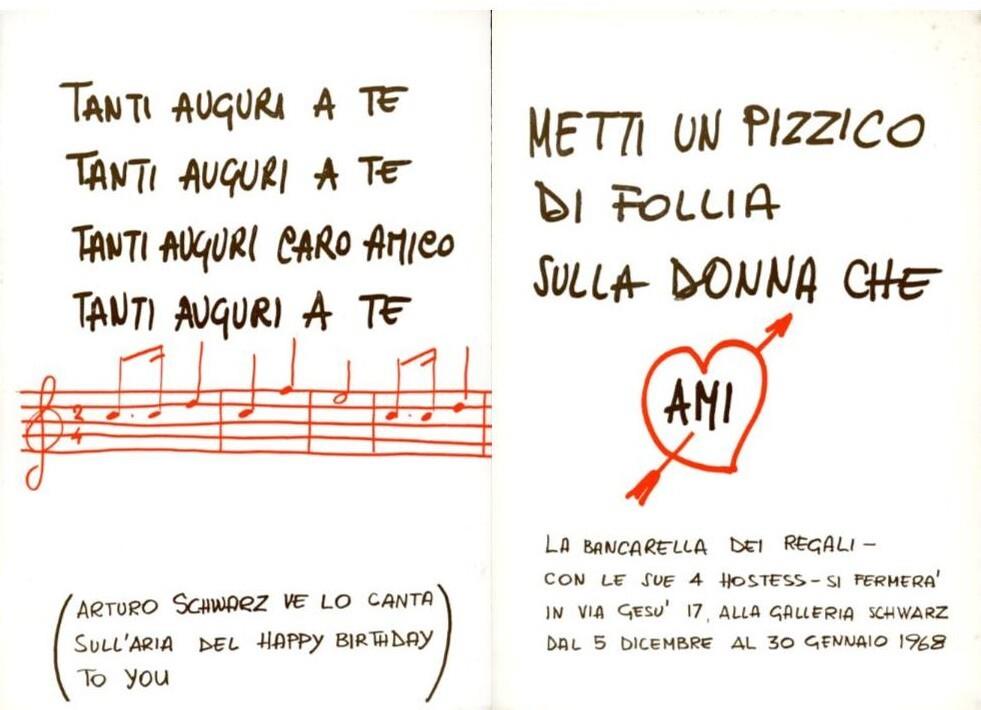 TANTI AUGURI A TE
TANTI AUGURI A TE
TANTI AUGURI CARO AMICO
TANTI AUGURI A TE
2
4
(ARTURO SCHWARZ VE LO CANTA
SULL'ARIA DEL HAPPY BIRTHDAY
TO YOU)
METTI UN PIZZICO
DI FOLLIA
SULLA DONNA CHE
AMI
LA BANCARELLA DEI REGALI –
CON LE SUE 4 HOSTESS – SI FERMERA'
IN VIA GESU' 17, ALLA GALLERIA SCHWARZ
DAL 5 DICEMBRE AL 30 GENNAIO 1968